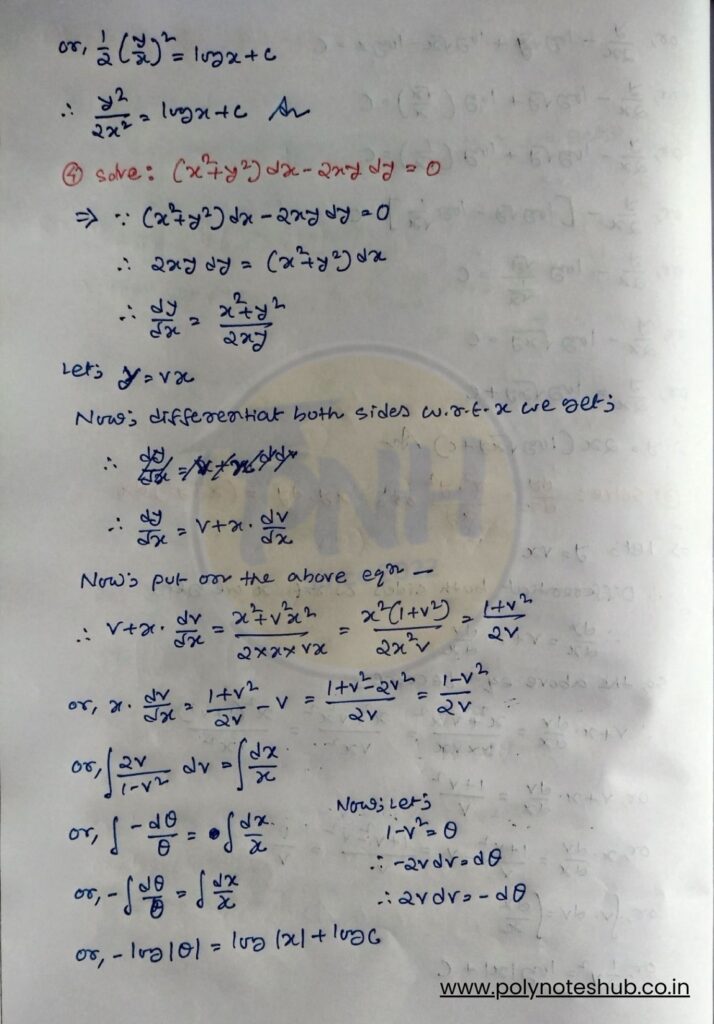 or, 1/2 (y/x)² = log x + c
∴ y²/2x² = log x + c Ans
④ solve: (x²+y²) dx - 2xy dy = 0
⇒ ∵ (x²+y²) dx - 2xy dy = 0
∴ 2xy dy = (x²+y²) dx
∴ dy/dx = x²+y²/2xy
Let; y = vx
Now; differential both sides w.r.t. x we get;
∴ dy/dx = v + x · dv/dx
Now; put on the above eqn —
∴ v+x · dv/dx = x²+v²x²/2×x×vx = x²(1+v²)/2x²v = 1+v²/2v
or, x · dv/dx = 1+v²/2v - v = 1+v²-2v²/2v = 1-v²/2v
or, ∫ 2v/1-v² dv = ∫ dx/x
Now; Let;
1-v² = θ
∴ -2v dv = dθ
∴ 2v dv = - dθ
or, ∫ -dθ/θ = ∫ dx/x
or, - ∫ dθ/θ = ∫ dx/x
or, - log |θ| = log |x| + log c
PNH
www.polynoteshub.co.in